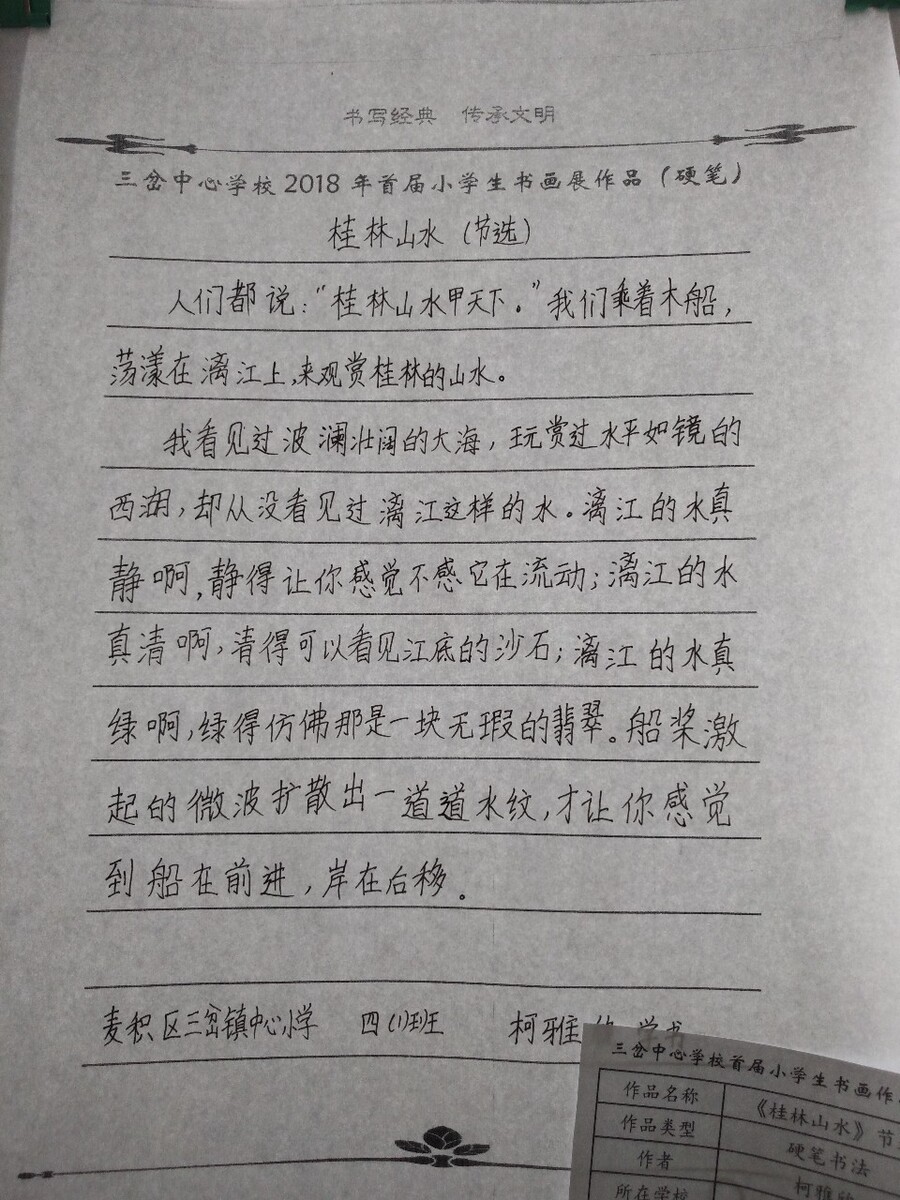 书写经典 传承文明
三岔中心学校2018年首届小学生书画展作品（硬笔）
桂林山水（节选）
人们都说：“桂林山水甲天下。”我们乘着木船，
荡漾在漓江上，来观赏桂林的山水。
我看见过波澜壮阔的大海，玩赏过水平如镜的
西湖，却从没看见过漓江这样的水。漓江的水真
静啊，静得让你感觉不感它在流动；漓江的水
真清啊，清得可以看见江底的沙石；漓江的水真
绿啊，绿得仿佛那是一块无瑕的翡翠。船桨激
起的微波扩散出一道道水纹，才让你感觉
到船在前进，岸在后移。
麦积区三岔镇中心小学 四（1）班 柯雅
三岔中心学校首届小学生书画作
作品名称 《桂林山水》节
作品类型 硬笔书法
作者 柯雅
所在学校